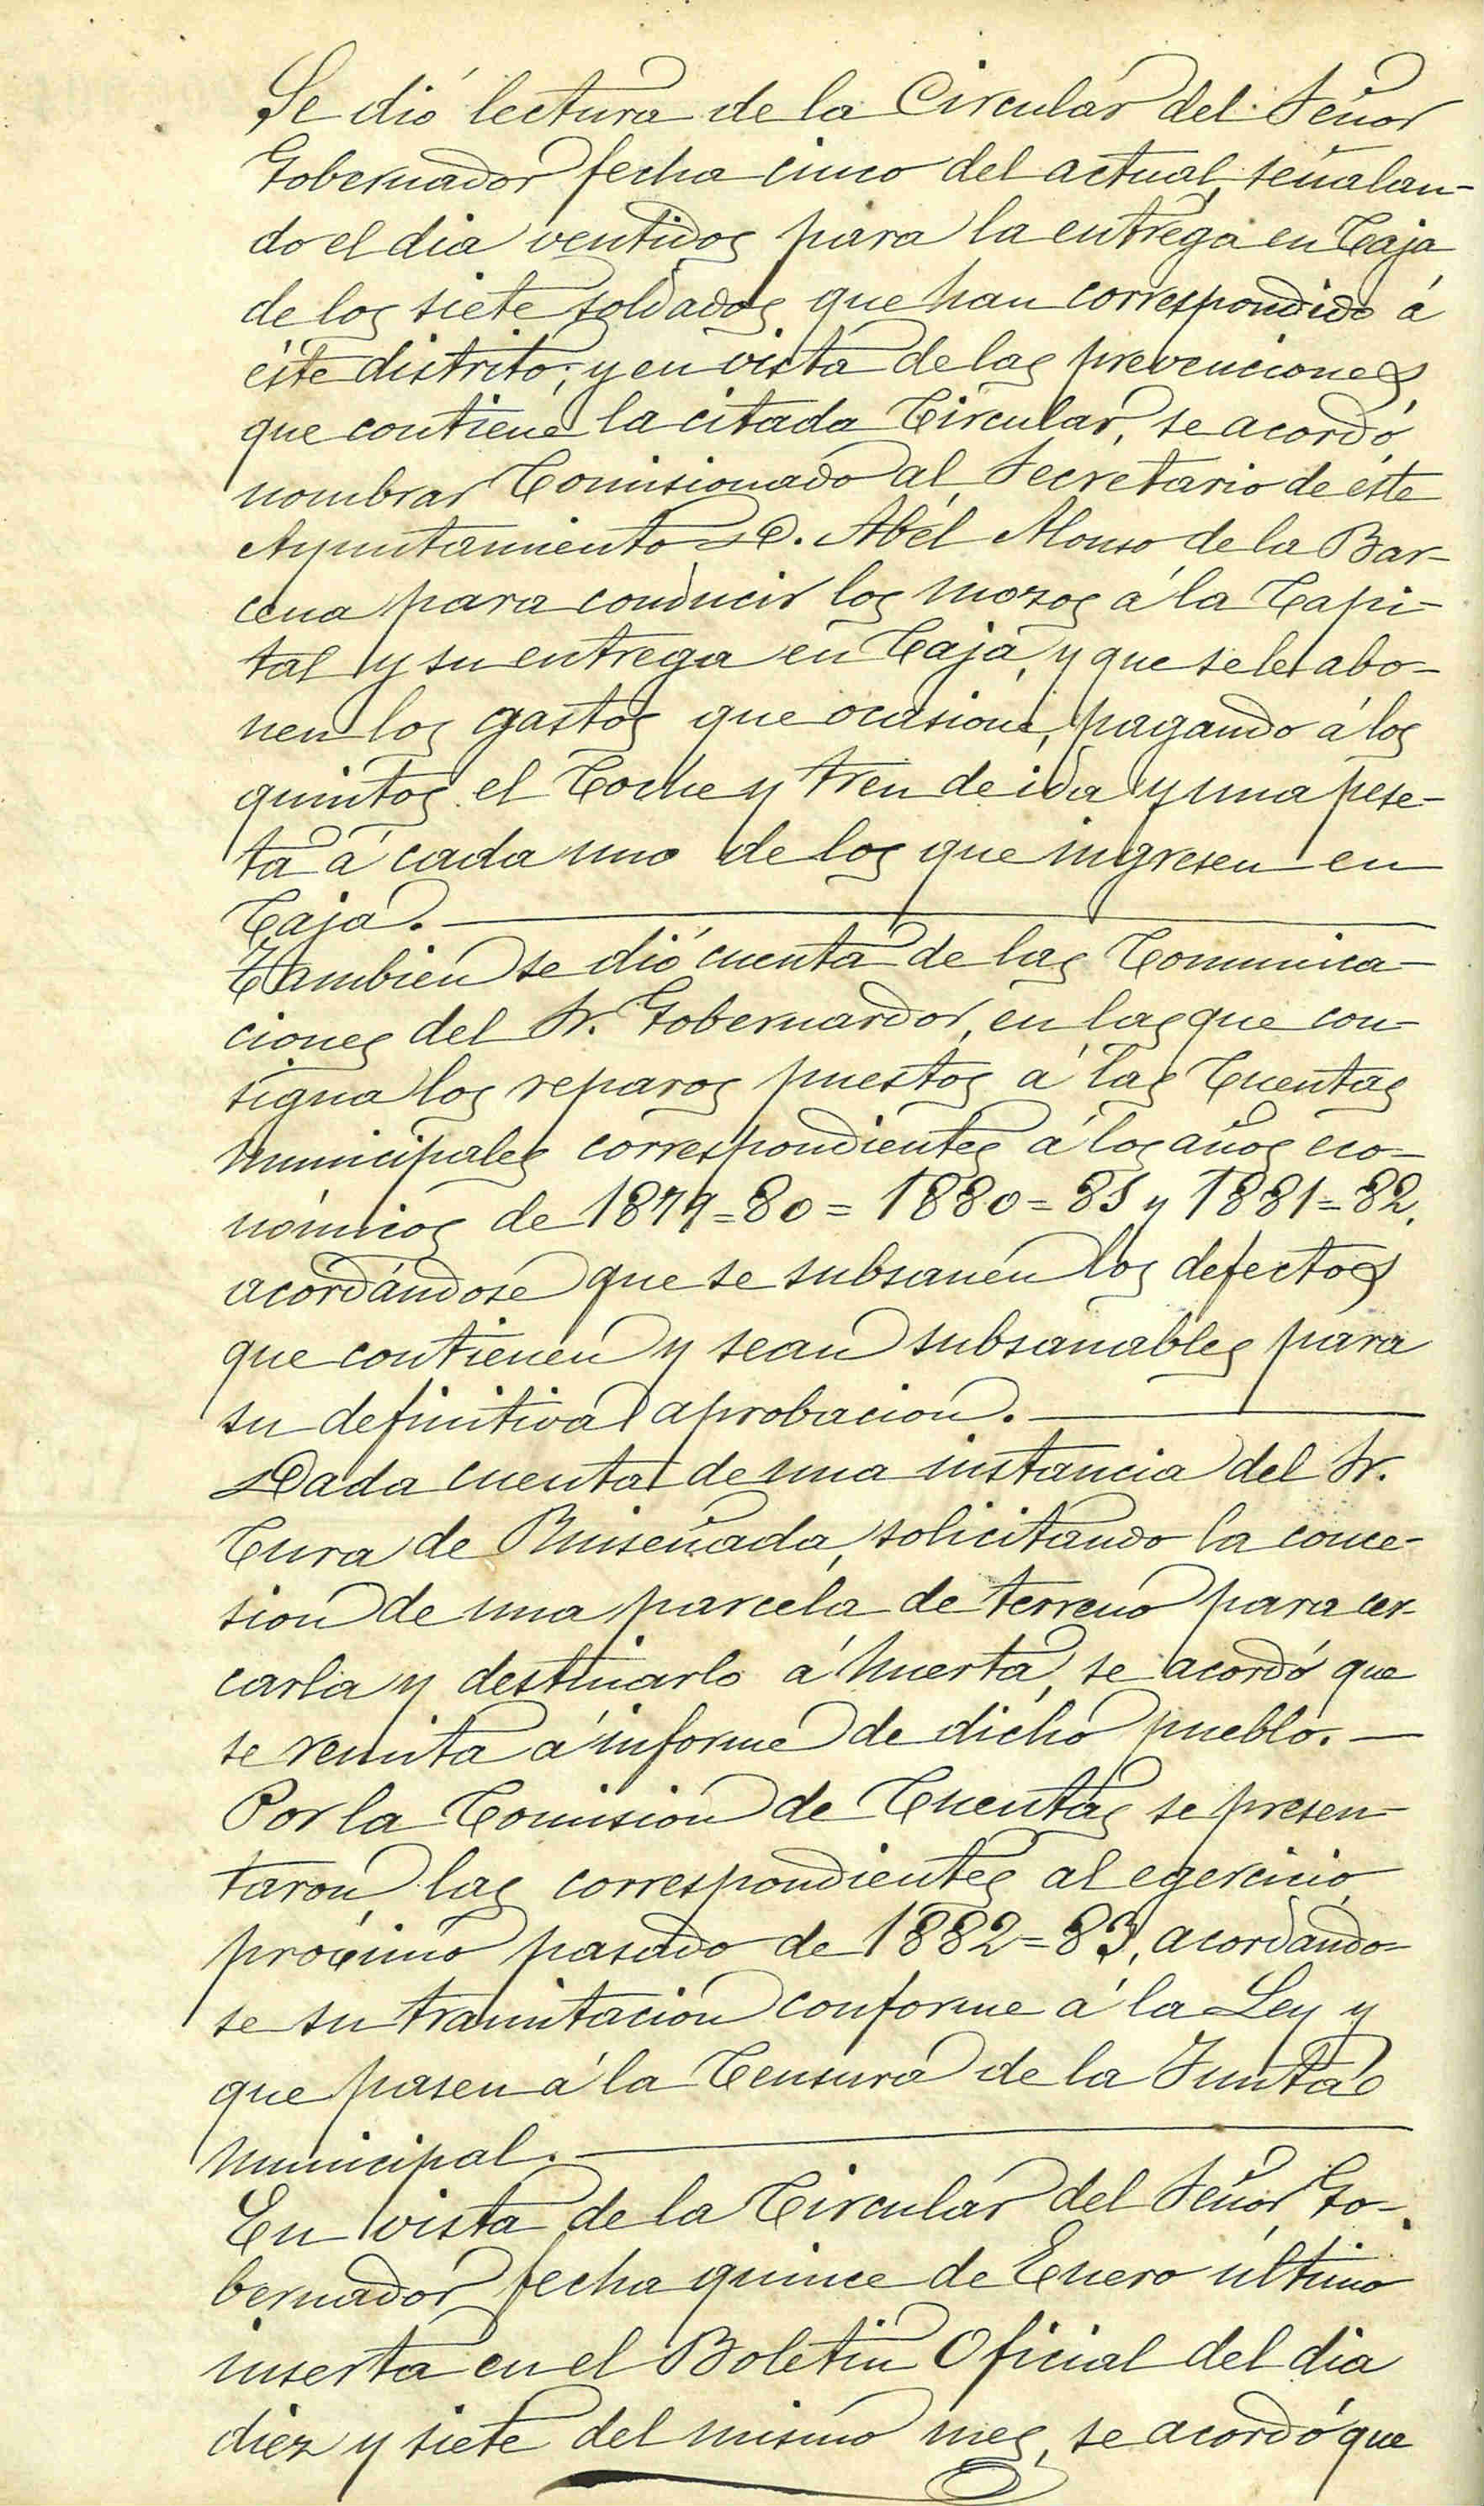 Se dió lectura de la Circular del Señor
Gobernador fecha cinco del actual, señalan-
do el dia ventidos para la entrega en Caja
de los siete soldados que han correspondido á
éste distrito; y en vista de las prevenciones
que contiene la citada Circular, se acordó
nombrar Comisionado al Secretario de éste
Ayuntamiento D. Abél Alonso de la Bar-
cena para conducir los mozos á la Capi-
tal y su entrega en Caja, y que se le abo-
nen los gastos que ocasione, pagando á los
quintos el Coche y tren de ida y una pese-
ta á cada uno de los que ingresen en
Caja.
Tambien se dió cuenta de las Comunica-
ciones del Sr. Gobernardor, en las que con-
signa los reparos puestos á las Cuentas
municipales correspondientes á los años eco-
nómicos de 1879=80= 1880=81 y 1881=82,
acordándose que se subsanen los defectos
que contienen y sean subsanables para
su definitiva aprobacion.
Dada cuenta de una instancia del Sr.
Cura de Ruiseñada, solicitando la conce-
sion de una parcela de terreno para cer-
carla y destinarlo á huerta, se acordó que
se remita á informe de dicho pueblo.
Por la Comision de Cuentas se presen-
taron las correspondientes al egercicio
proximo pasado de 1882=83, acordando-
se su tramitacion conforme á la Ley y
que pasen á la Censura de la Junta
municipal.
En vista de la Circular del Señor Go-
bernador fecha quince de Enero último
inserta en el Boletin Oficial del dia
diez y siete del mismo mes, se acordó que